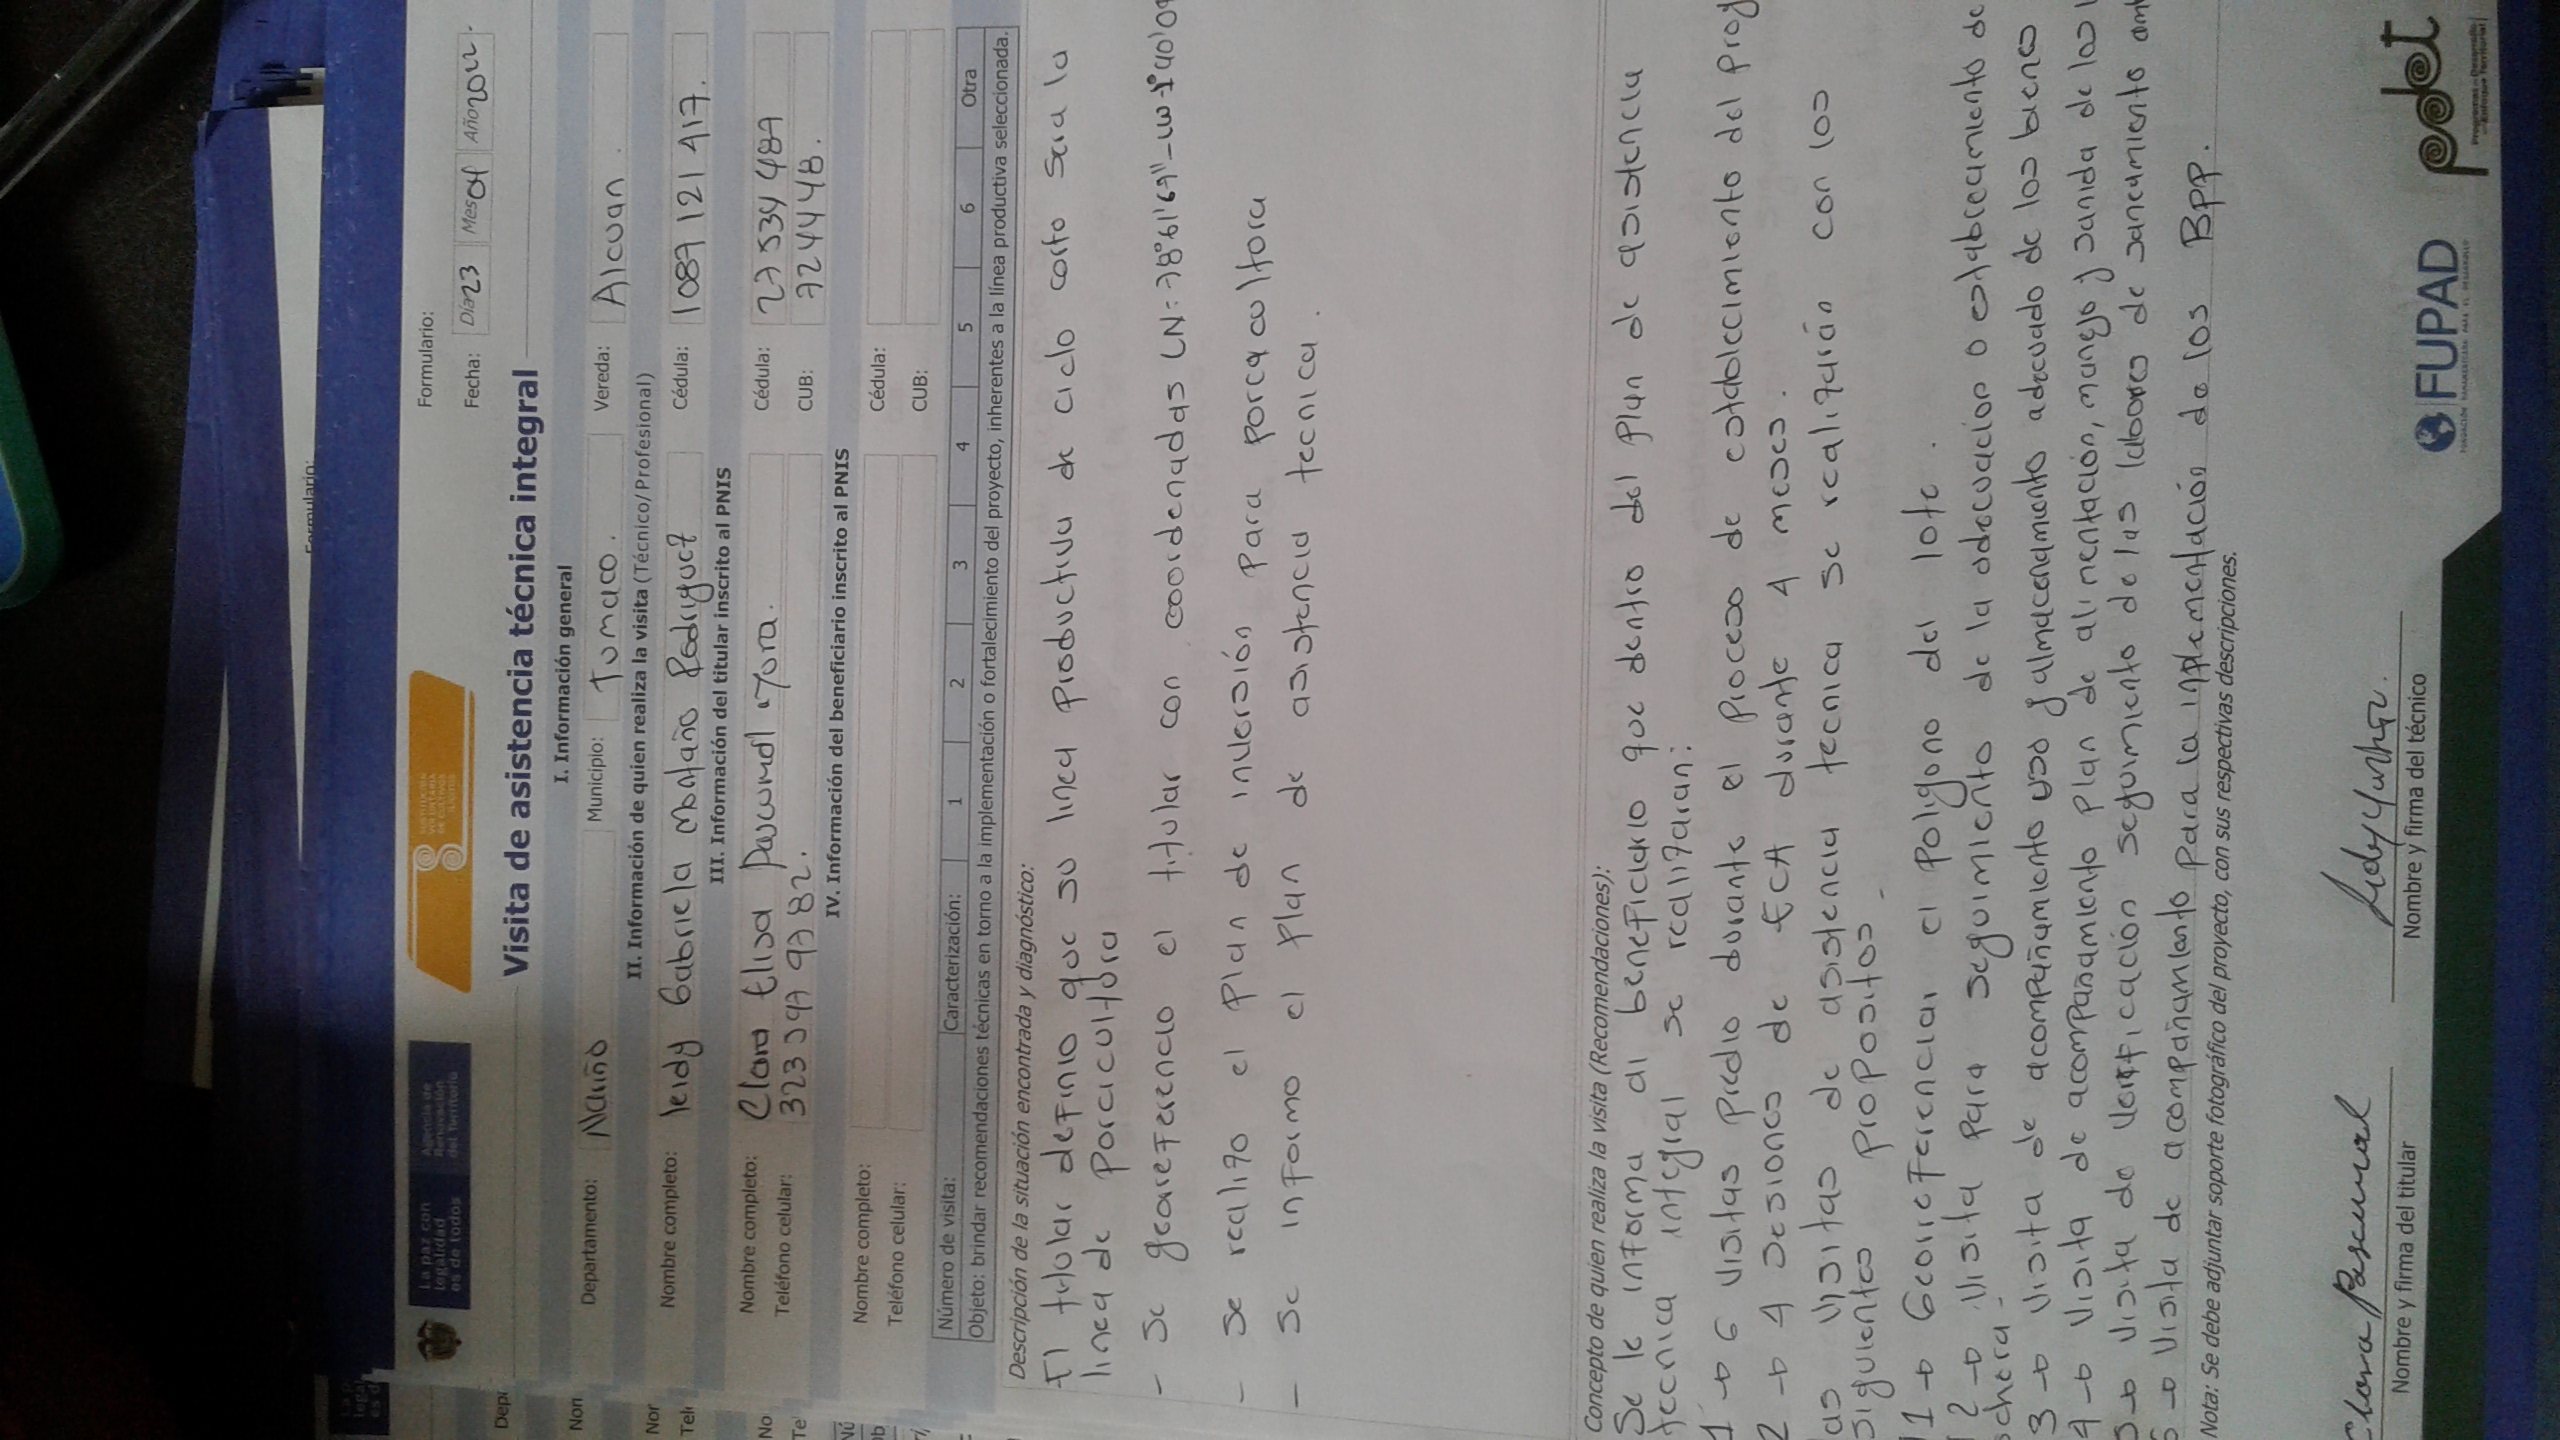 La paz con legalidad es de todos
Agencia de Renovación del Territorio
SUSTITUCIÓN VOLUNTARIA DE CULTIVOS ILÍCITOS
Formulario:
Fecha: Día 23 Mes 04 Año 2022.
Visita de asistencia técnica integral
I. Información general
Departamento: Nariño Municipio: Tumaco. Vereda: Alcuan.
II. Información de quien realiza la visita (Técnico/Profesional)
Nombre completo: leidy Gabriela montaño Rodriguez Cédula: 1087 121 417.
III. Información del titular inscrito al PNIS
Nombre completo: Clara Elisa Pascumal Cédula: 27 534 487
Teléfono celular: 323 347 97 82. CUB: 7244448.
IV. Información del beneficiario inscrito al PNIS
Nombre completo: Cédula:
Teléfono celular: CUB:
Número de visita: Caracterización: 1 2 3 4 5 6 Otra
Objeto: brindar recomendaciones técnicas en torno a la implementación o fortalecimiento del proyecto, inherentes a la línea productiva seleccionada.
Descripción de la situación encontrada y diagnóstico:
El titular definio que su linea Productiva de ciclo corto sera la
linea de Porcicultura
- se georeferencio el titular con coordenadas LN:
- se realizo el Plan de inversión Para porcacultora
- se informo el Plan de asistencia tecnica.
Concepto de quien realiza la visita (Recomendaciones):
Se le informa al beneficiario que dentro del Plan de asistencia
tecnica integral se realizaran:
1 → 6 visitas Predio durante el Proceso de establecimiento del Proy
2 → 4 sesiones de ECA durante 4 meses.
as visitas de asistencia tecnica se realizarán con los
siguientes Propositos.
1 → Georeferenciar el Poligono del lote.
2 → visita Para seguimiento de la adecuacion o establecimiento de
chera.
3 → visita de acompañamiento uso y almacenamiento adecuado de los bienes
4 → visita de acompañamiento Plan de alimentación, manejo y sanida de los
5 → visita de verificación seguimiento de las labores de saneamiento amb
6 → vista de acompañamiento Para la implementación de los BPP.
Nota: Se debe adjuntar soporte fotográfico del proyecto, con sus respectivas descripciones.
Clara Pascual
Nombre y firma del titular
Nombre y firma del técnico
FUPAD
FUNDACIÓN PANAMERICANA PARA EL DESARROLLO
pdet
Programas de Desarrollo con Enfoque Territorial